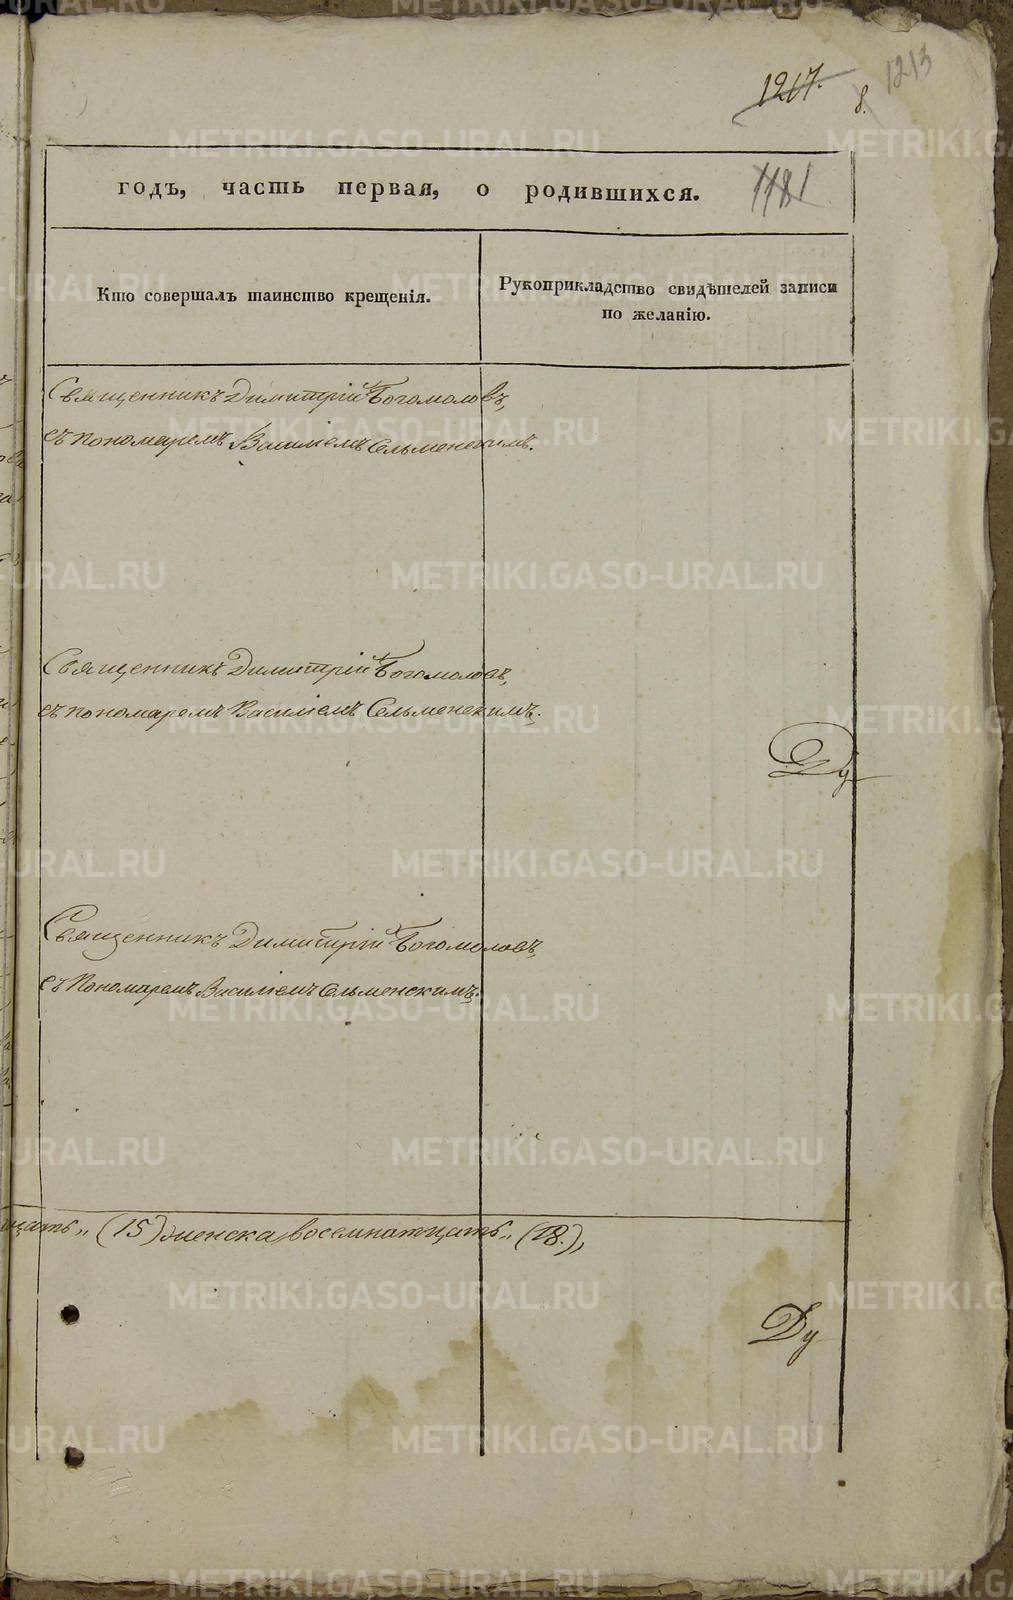 1217.
8.
1213
годъ, часть первая, о родившихся.
1181
Кто совершалъ таинство крещенія.
Рукоприкладство свидѣтелей записи
по желанію.
Священникъ Димитрій Богомоловъ,
съ пономаремъ Василіемъ Сельменскимъ.
Священникъ Димитрій Богомоловъ,
съ пономаремъ Василіемъ Сельменскимъ.
Ду
Священникъ Димитрій Богомоловъ,
съ Пономаремъ Василіемъ Сельменскимъ.
цать„ (15) женска, восемнатцать„ (18.),
Ду
METRIKI.GASO-URAL.RU